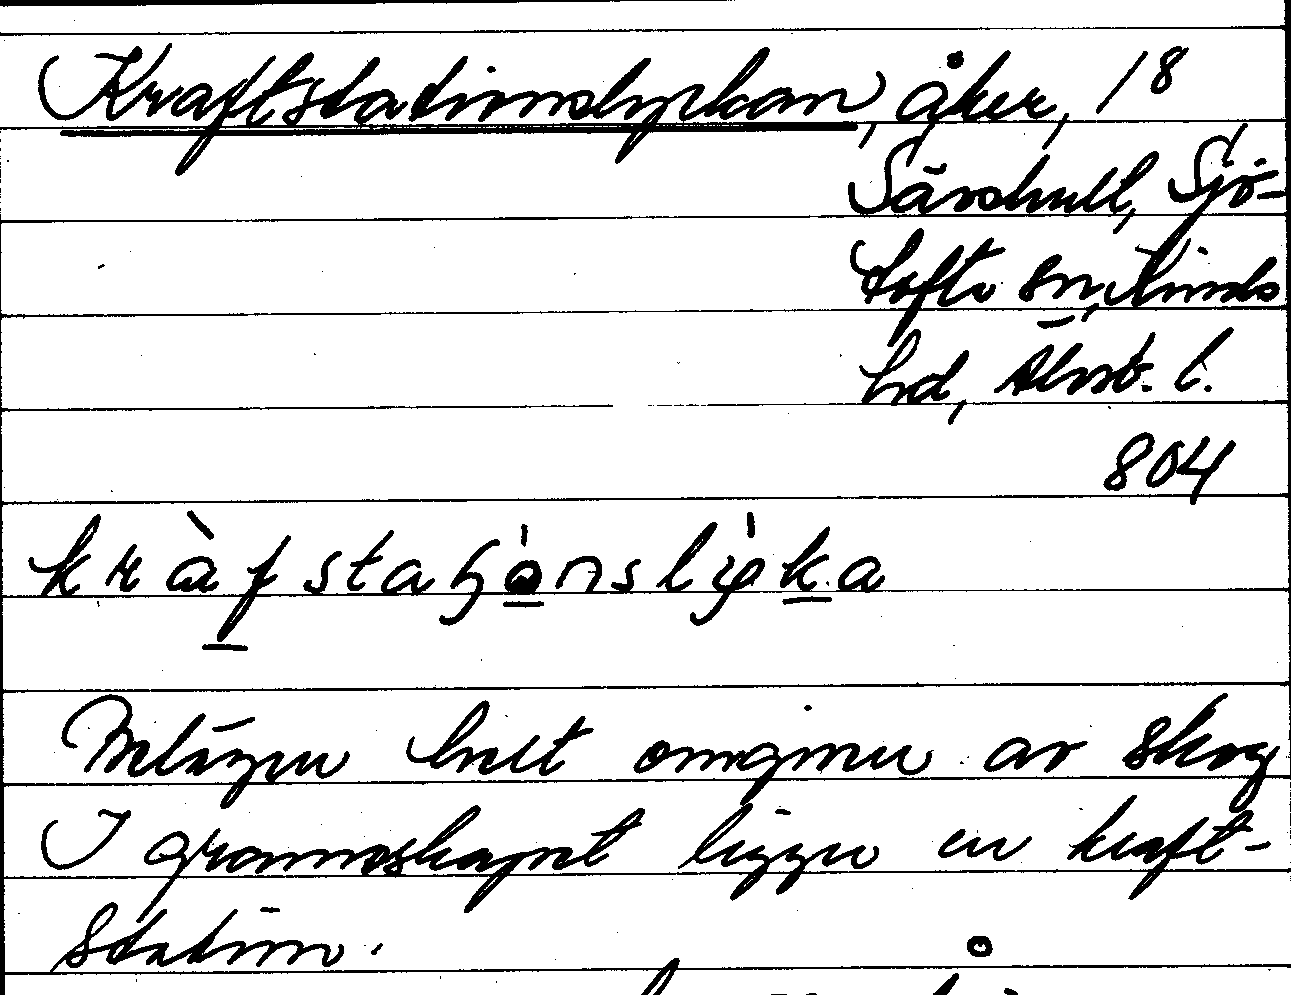 Kraftstationslyckan, åker, 18
Särshult, Sjö-
tofta sn, Kinds
hd, Älvsb. l.
804
Avlägsen helt omgiven av skog
I grannskapet ligger en kraft-
station.